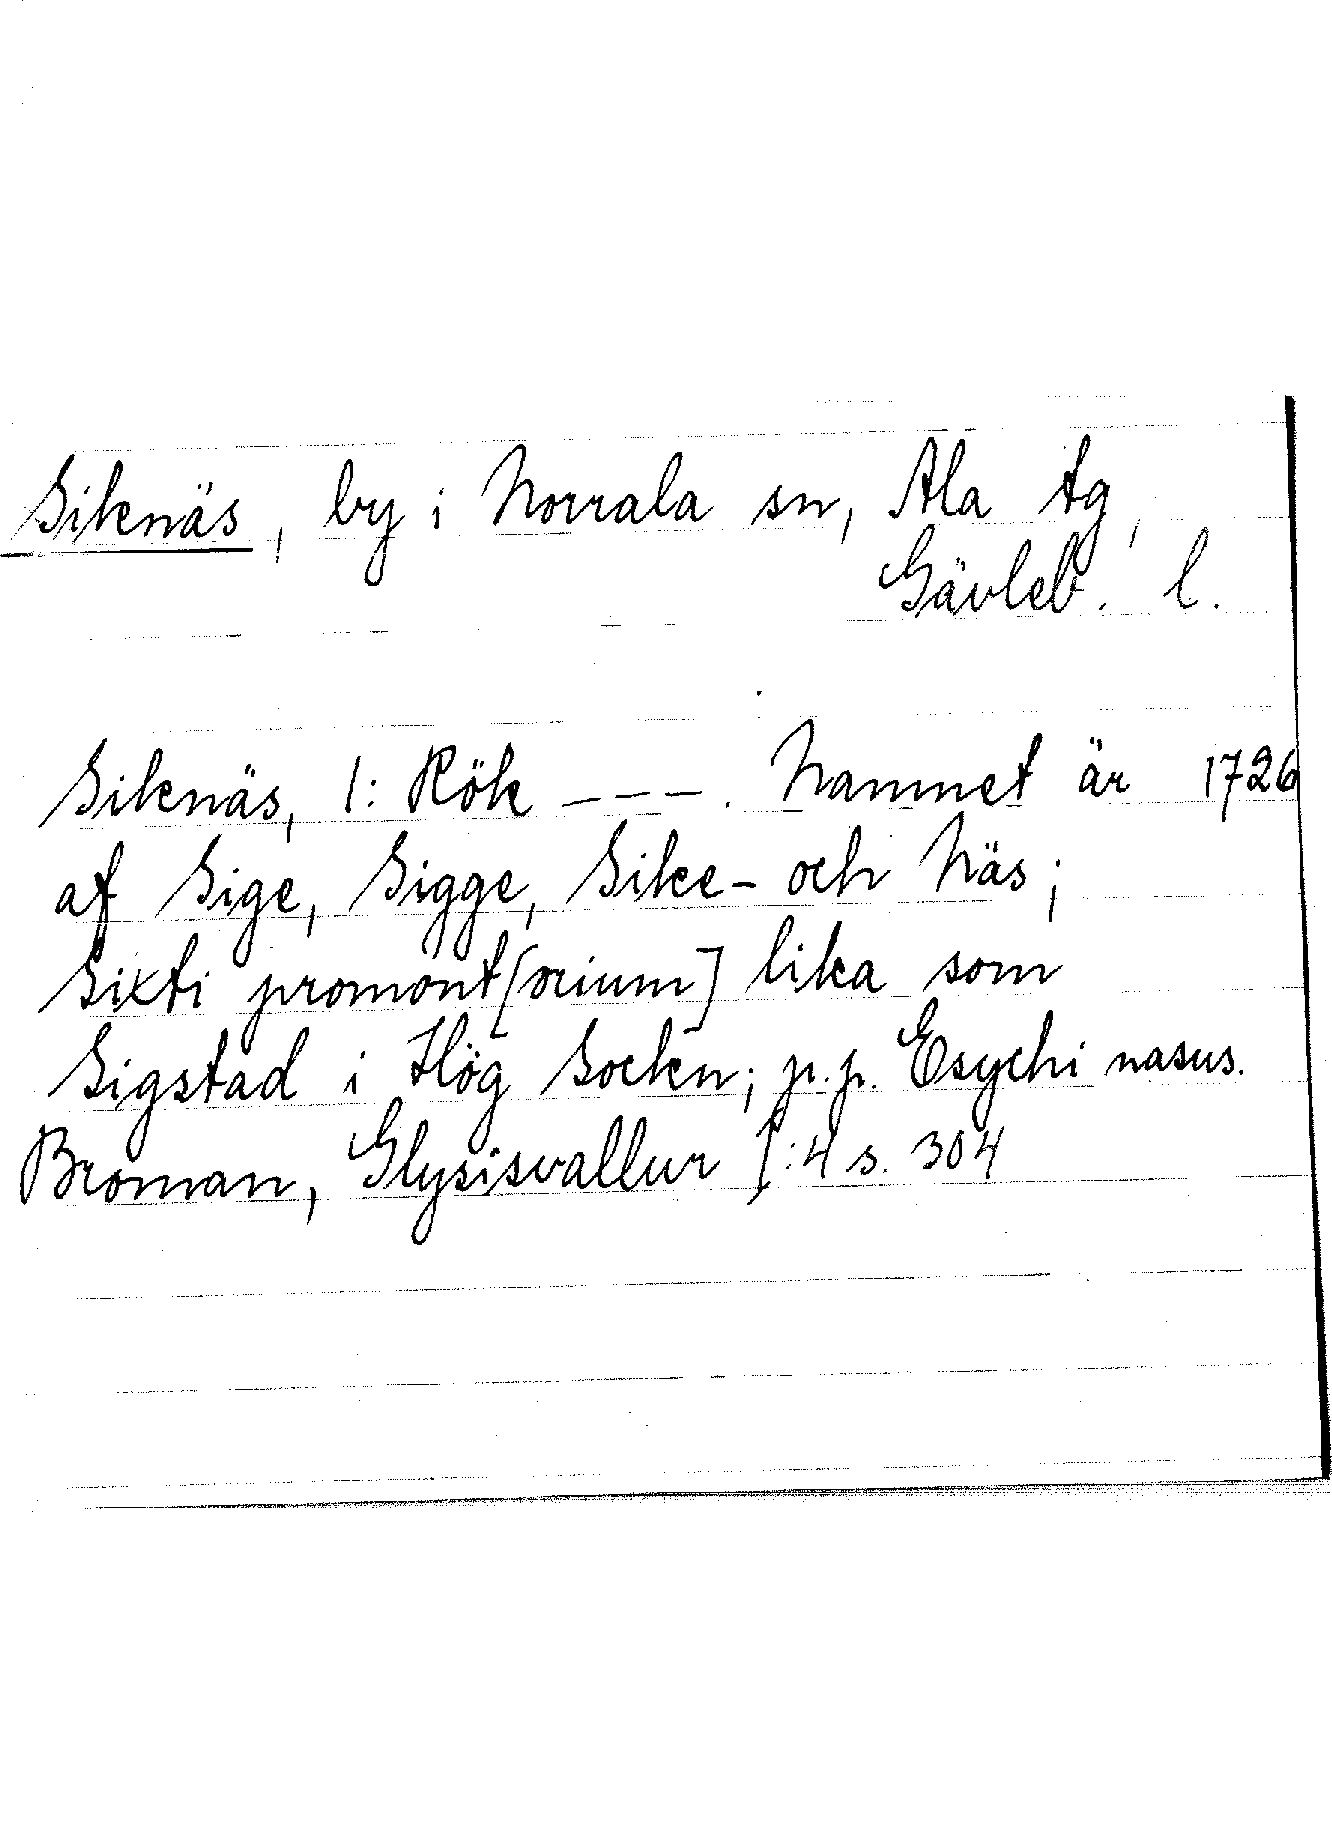 Sikenäs, by i Norrala sn, Ala tg,
Gävleb. l.
Sikenäs, 1: Rök ---. Namnet är 1726
af Sige, Sigge, Sike- och Näs;
Sixti promont[orium] lika som
Sigstad i Hög Socken; p.p. Esychi nasus.
Broman, Glysisvallur I:4 s. 304